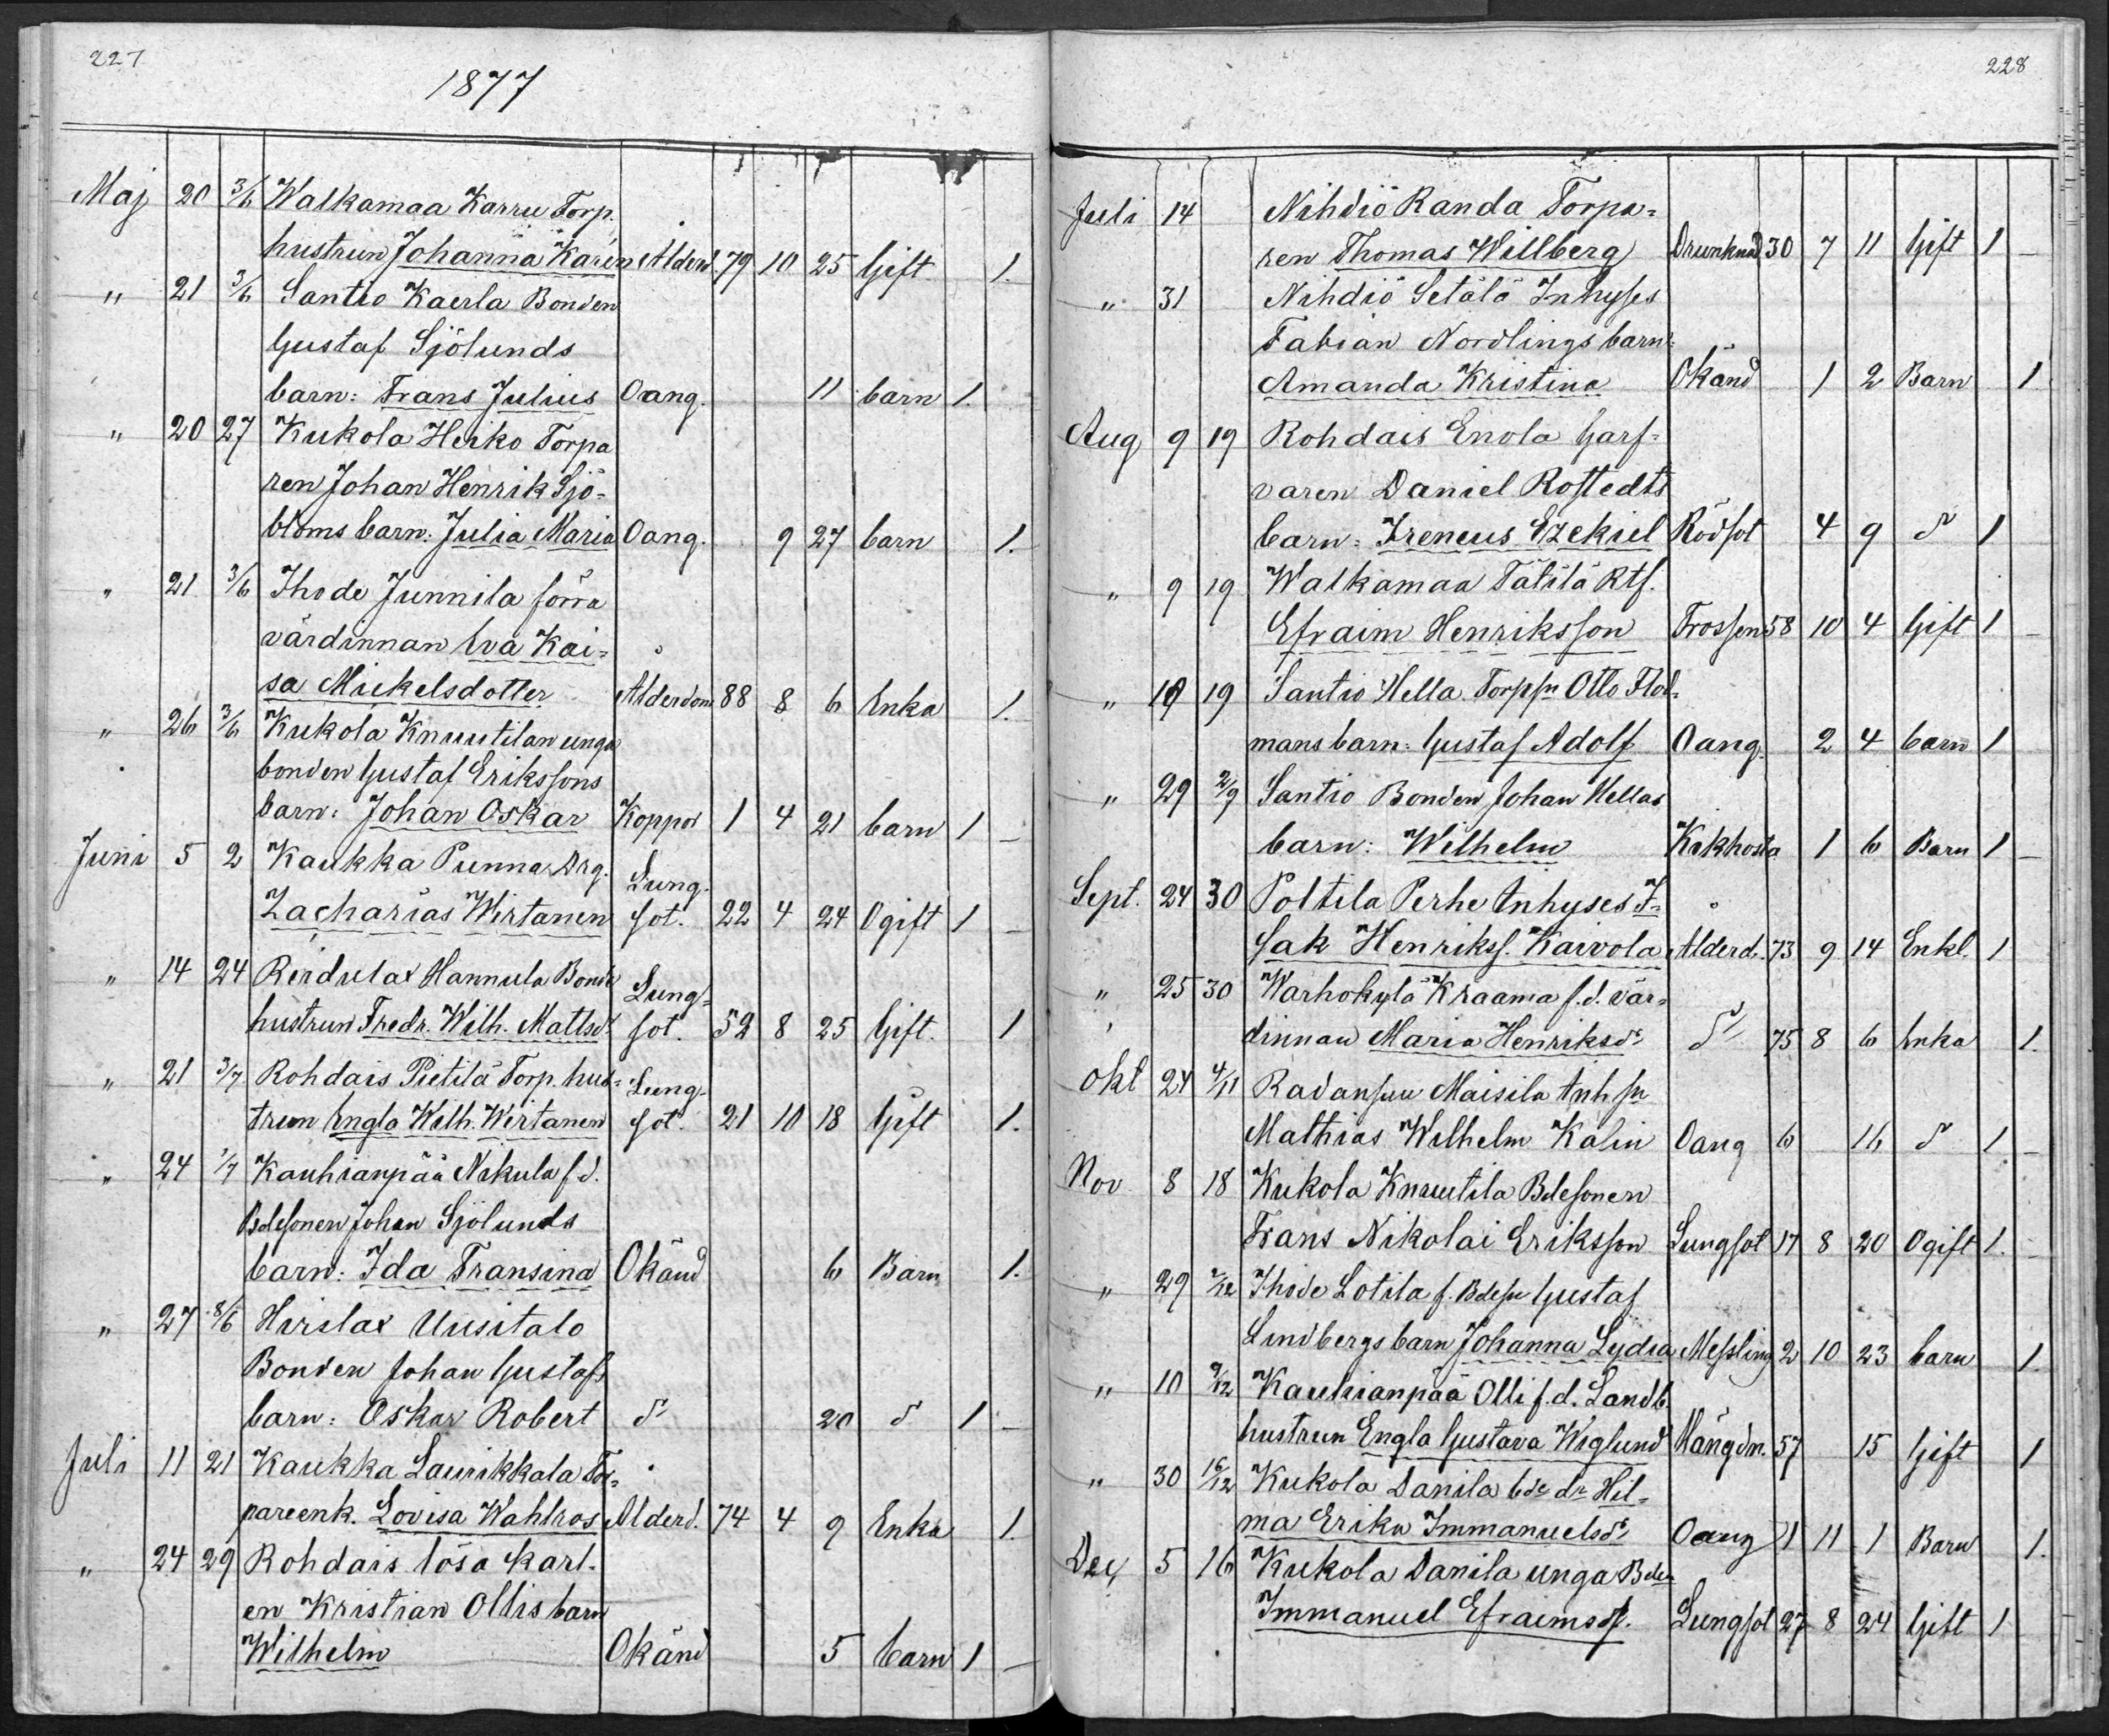 227
1877
Maj 20 3/6 Walkamaa Karru Torp.
hustrun Johanna Karin Alderd. 79 10 25 Gift 1.
" 21 3/6 Santio Kaerla Bonden
Gustaf Sjölunds
barn: Frans Julius Oang. 11 barn 1.
" 20 27 Kukola Heiko Torpa
ren Johan Henrik Sjö-
bloms barn. Julia Maria Oang. 9 27 barn 1.
" 21 3/6 Ihode Junnila förra
värdinnan Eva Kai-
sa Mickelsdotter Alderdom 88 8 6 Enka 1.
" 26 3/6 Kukola Knuutilan unga
bonden Gustaf Erikssons
barn: Johan Oskar Koppor 1 4 21 barn 1 –
Juni 5 2 Kaukka Punna Drg. Lung-
Zacharias Wirtanen sot. 22 4 24 Ogift 1 –
" 14 24 Reidulax Hannula Bonde Lung-
hustrun Fredr. Wilh. Mattsdr sot. 52 8 25 Gift. 1
" 21 3/7 Rohdais Pietilä Torp. hus- Lung-
trun Engla Wilh. Wirtanen sot. 21 10 18 Gift 1.
" 24 1/7 Kauhianpää Nikula f.d.
Bdesonen Johan Sjölunds
barn: Ida Fransina Okänd 6 Barn 1.
" 27 8/6 Hirslax Uusitalo
Bonden Johan Gustafs
barn: Oskar Robert do 20 do 1 –
Juli 11 21 Kaukka Laurikkala Tor-
pareenk. Lovisa Wahlros Alderd. 74 4 9 Enka 1.
" 24 29 Rohdais lösa karl-
en Kristian Ollis barn
Wilhelm Okänd 5 barn 1 –
228
Juli 14 Nihdiö Randa Torpa-
ren Thomas Willberg Drunknad 30 7 11 Gift 1 –
" 31 Nihdiö Setälä Inhyses
Fabian Nordlings barn:
Amanda Kristina Okänd 1 2 Barn 1
Aug 9 19 Rohdais Enola Garf-
varen Daniel Rostedts
barn: Ireneus Ezekiel Rödsot 4 9 do 1
" 9 19 Walkamaa Tätilä Rtf.
Efraim Henriksson Frossen 58 10 4 Gift 1 –
" 10 19 Santio Hella Torpsn Otto Flod-
mans barn: Gustaf Adolf Oang. 2 4 barn 1
" 29 2/9 Santio Bonden Johan Hellas
barn: Wilhelm Kikhosta 1 6 Barn 1 –
Sept. 24 30 Poltila Perhe Inhyses I-
sak Henrikss. Kaivola Alderd. 73 9 14 Enkl. 1
" 25 30 Warhokylä Kraama f.d. vär-
dinnan Maria Henriksdr do 75 8 6 Enka 1.
Okt 24 4/11 Radansuu Maisila Inhsn
Mathias Wilhelm Kalin Oang 6 16 do 1 –
Nov 8 18 Kukola Knuutila Bdesonen
Frans Nikolai Eriksson Lungsot 17 8 20 Ogift 1. –
" 29 2/12 Ihode Lotila f. Bdesn Gustaf
Lindbergs barn Johanna Lydia Messling 2 10 23 barn 1
" 10 9/12 Kauhianpää Olli f.d. Landb.
hustrun Engla Gustava Wiglund Hängdn. 57 15 Gift 1
" 30 16/12 Kukola Danila bde dr Hil-
ma Erika Immanuelsdr Oang 1 11 1 Barn 1.
Dec 5 16 Kukola Danila unga Bden
Immanuel Efraimss. Lungsot 27 8 24 Gift 1